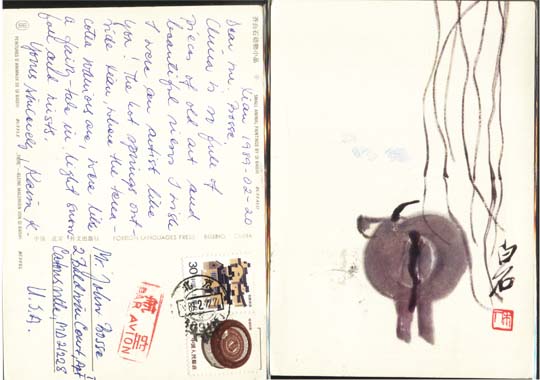 Xian 1989-02-20
Dear Mr. Posse
China is so full of
pieces of old art and
beautiful views I wish
I were an artist like
you! The hot springs out-
side Xian, where the terra-
cotta warriors are, were like
a fairy-tale in light snow-
fall and mists.
Yours sincerely, Karin K.
齐白石动物小品
SMALL ANIMAL PAINTINGS BY QI BAISHI
PEINTURES D'ANIMAUX DE QI BAISHI
KLEINE MALEREIEN VON QI BAISHI
中国
FOREIGN LANGUAGES PRESS BEIJING, CHINA
Mr John Posse
2 Baldwin Court, Apt
Catonsville, MD 21228
U.S.A.
航空
PAR AVION
30
中国人民邮政
白石